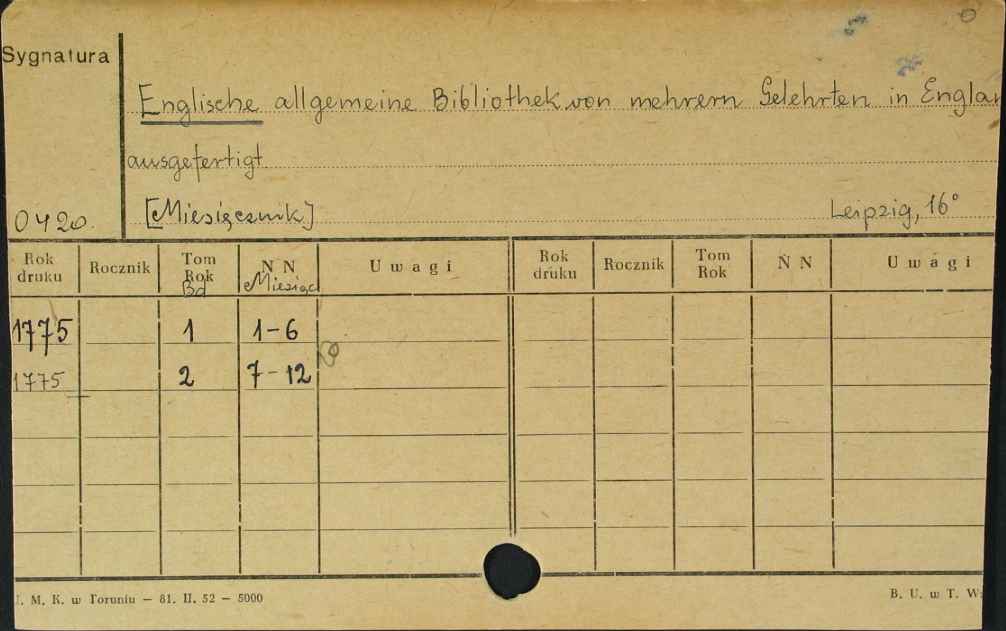 Sygnatura
Englische allgemeine Bibliothek von mehrern Gelehrten in Englan
ausgefertigt
0420. [Miesięcznik] Leipzig, 16°
Rok druku Rocznik Tom Rok Bd N N Miesiąc Uwagi Rok druku Rocznik Tom Rok N N Uwagi
1775 1 1-6
1775 2 7-12
U. M. K. w Toruniu — 81. II. 52 — 5000 B. U. w T.